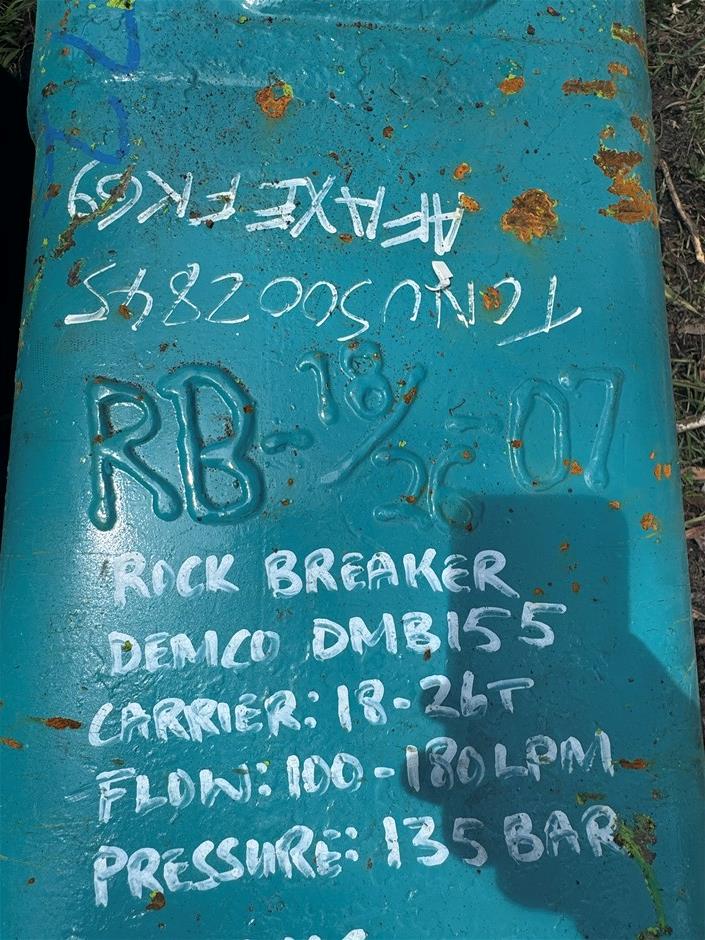 AFAXEFK69
TCNU5002845
RB-18/26-07
ROCK BREAKER
DEMCO DMB155
CARRIER: 18-26T
FLOW: 100-180LPM
PRESSURE: 135 BAR